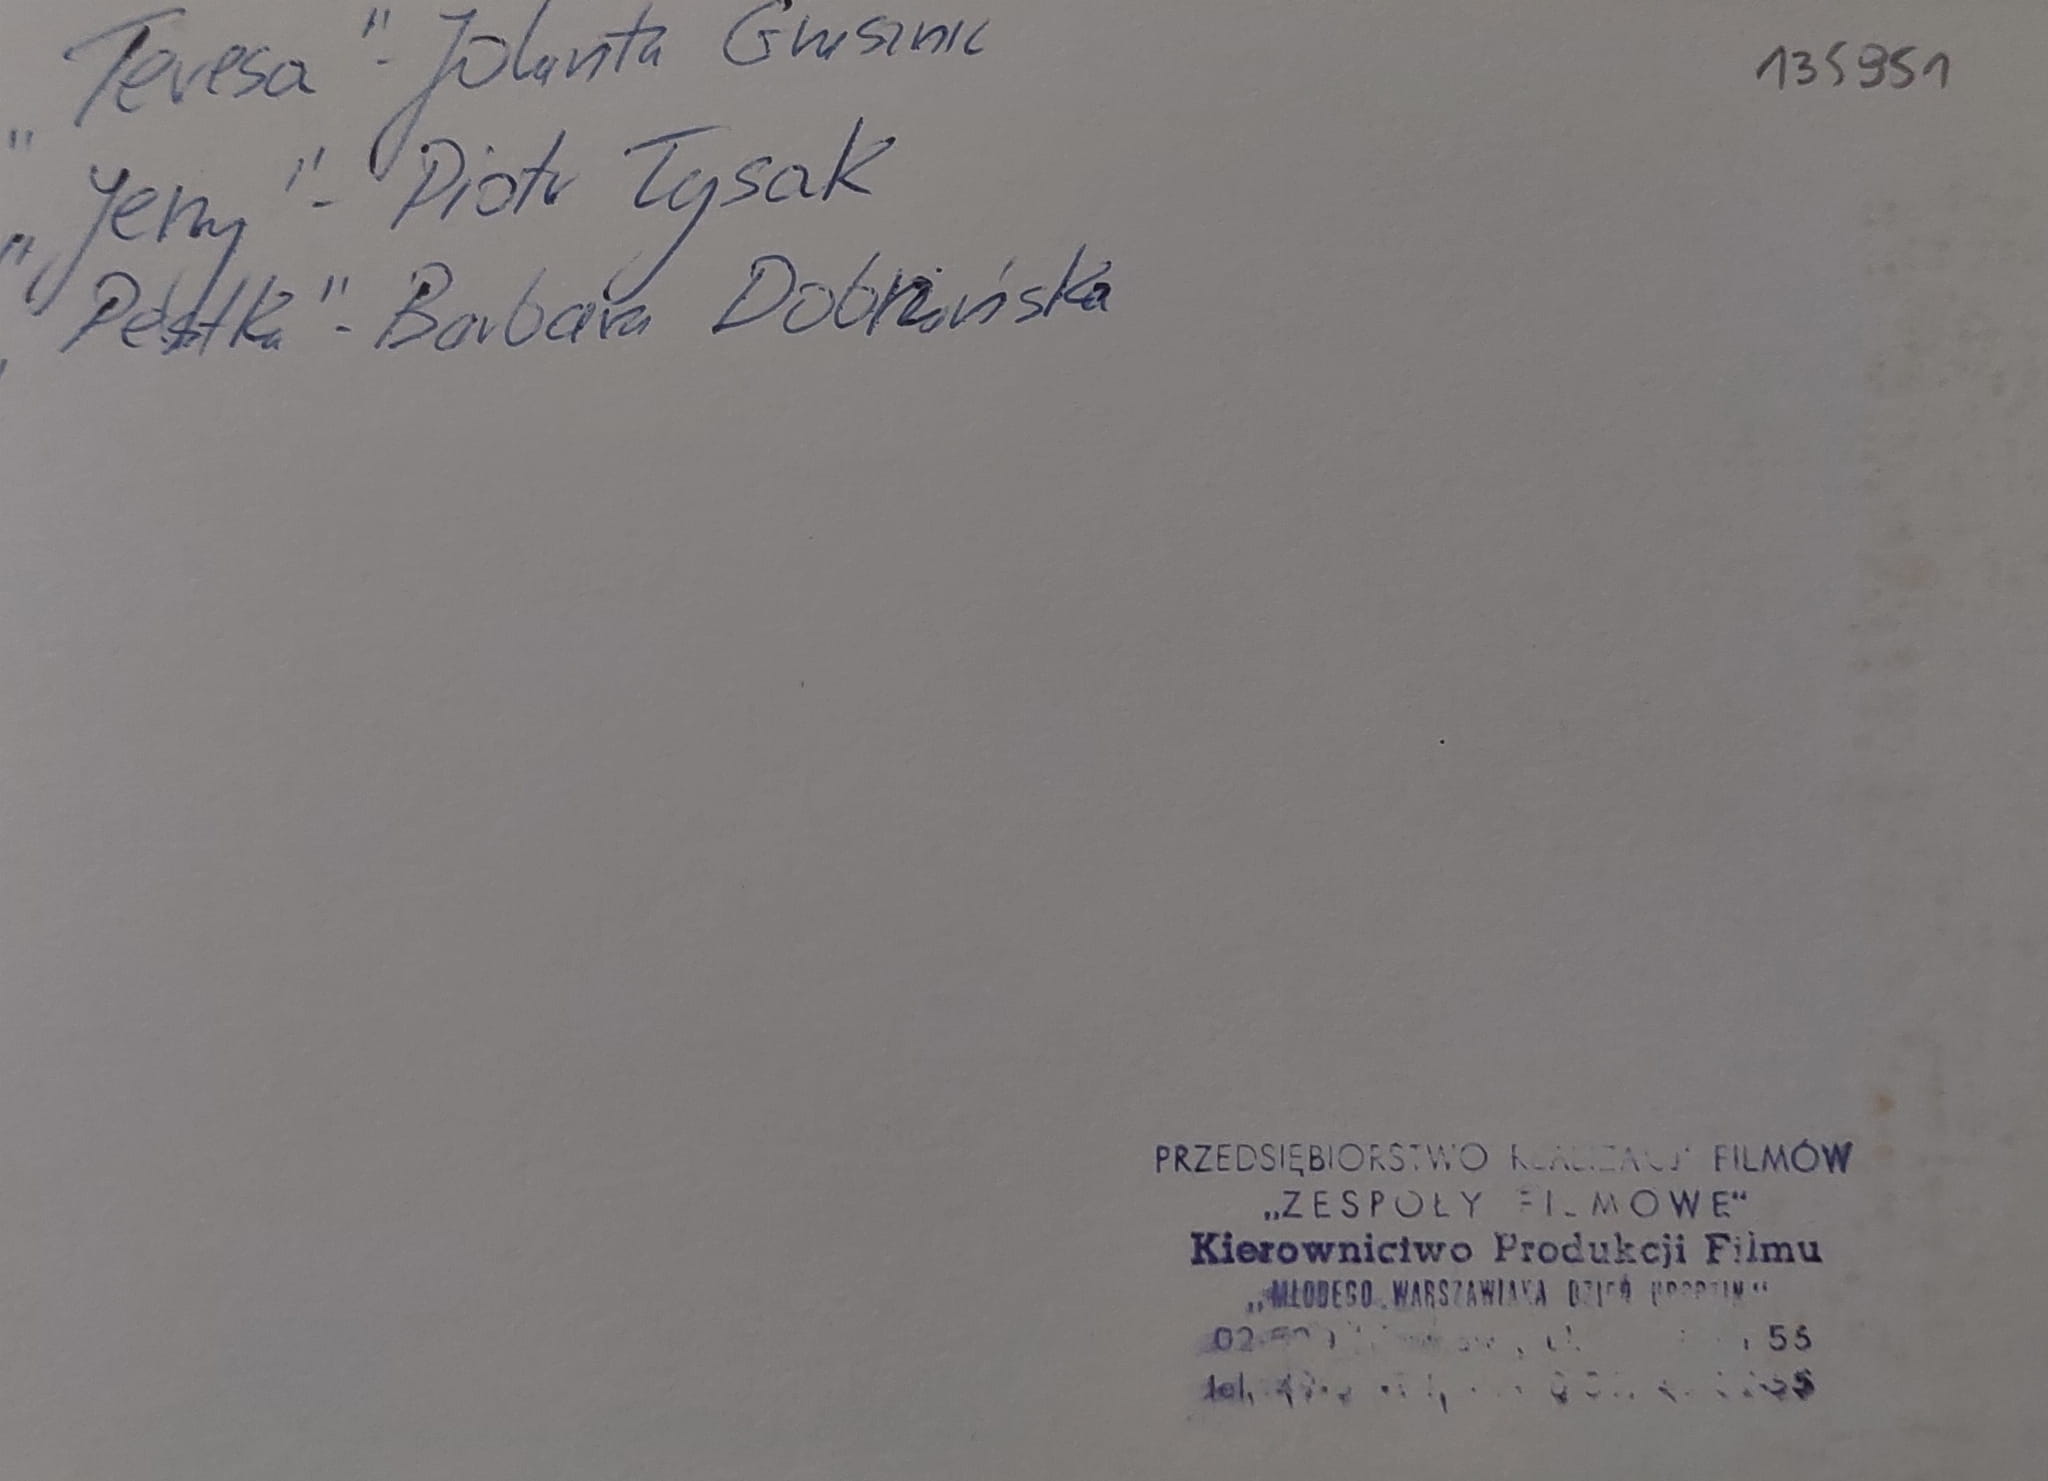 „Teresa" - Jolanta Grusznic
135951
„Jerzy" - Piotr Łysak
„Pestka" - Barbara Dobrzyńska
PRZEDSIĘBIORSTWO REALIZACJI FILMÓW
„ZESPOŁY FILMOWE"
Kierownictwo Produkcji Filmu
„MŁODEGO WARSZAWIAKA DZIEŃ URODZIN"
02 55
tel.